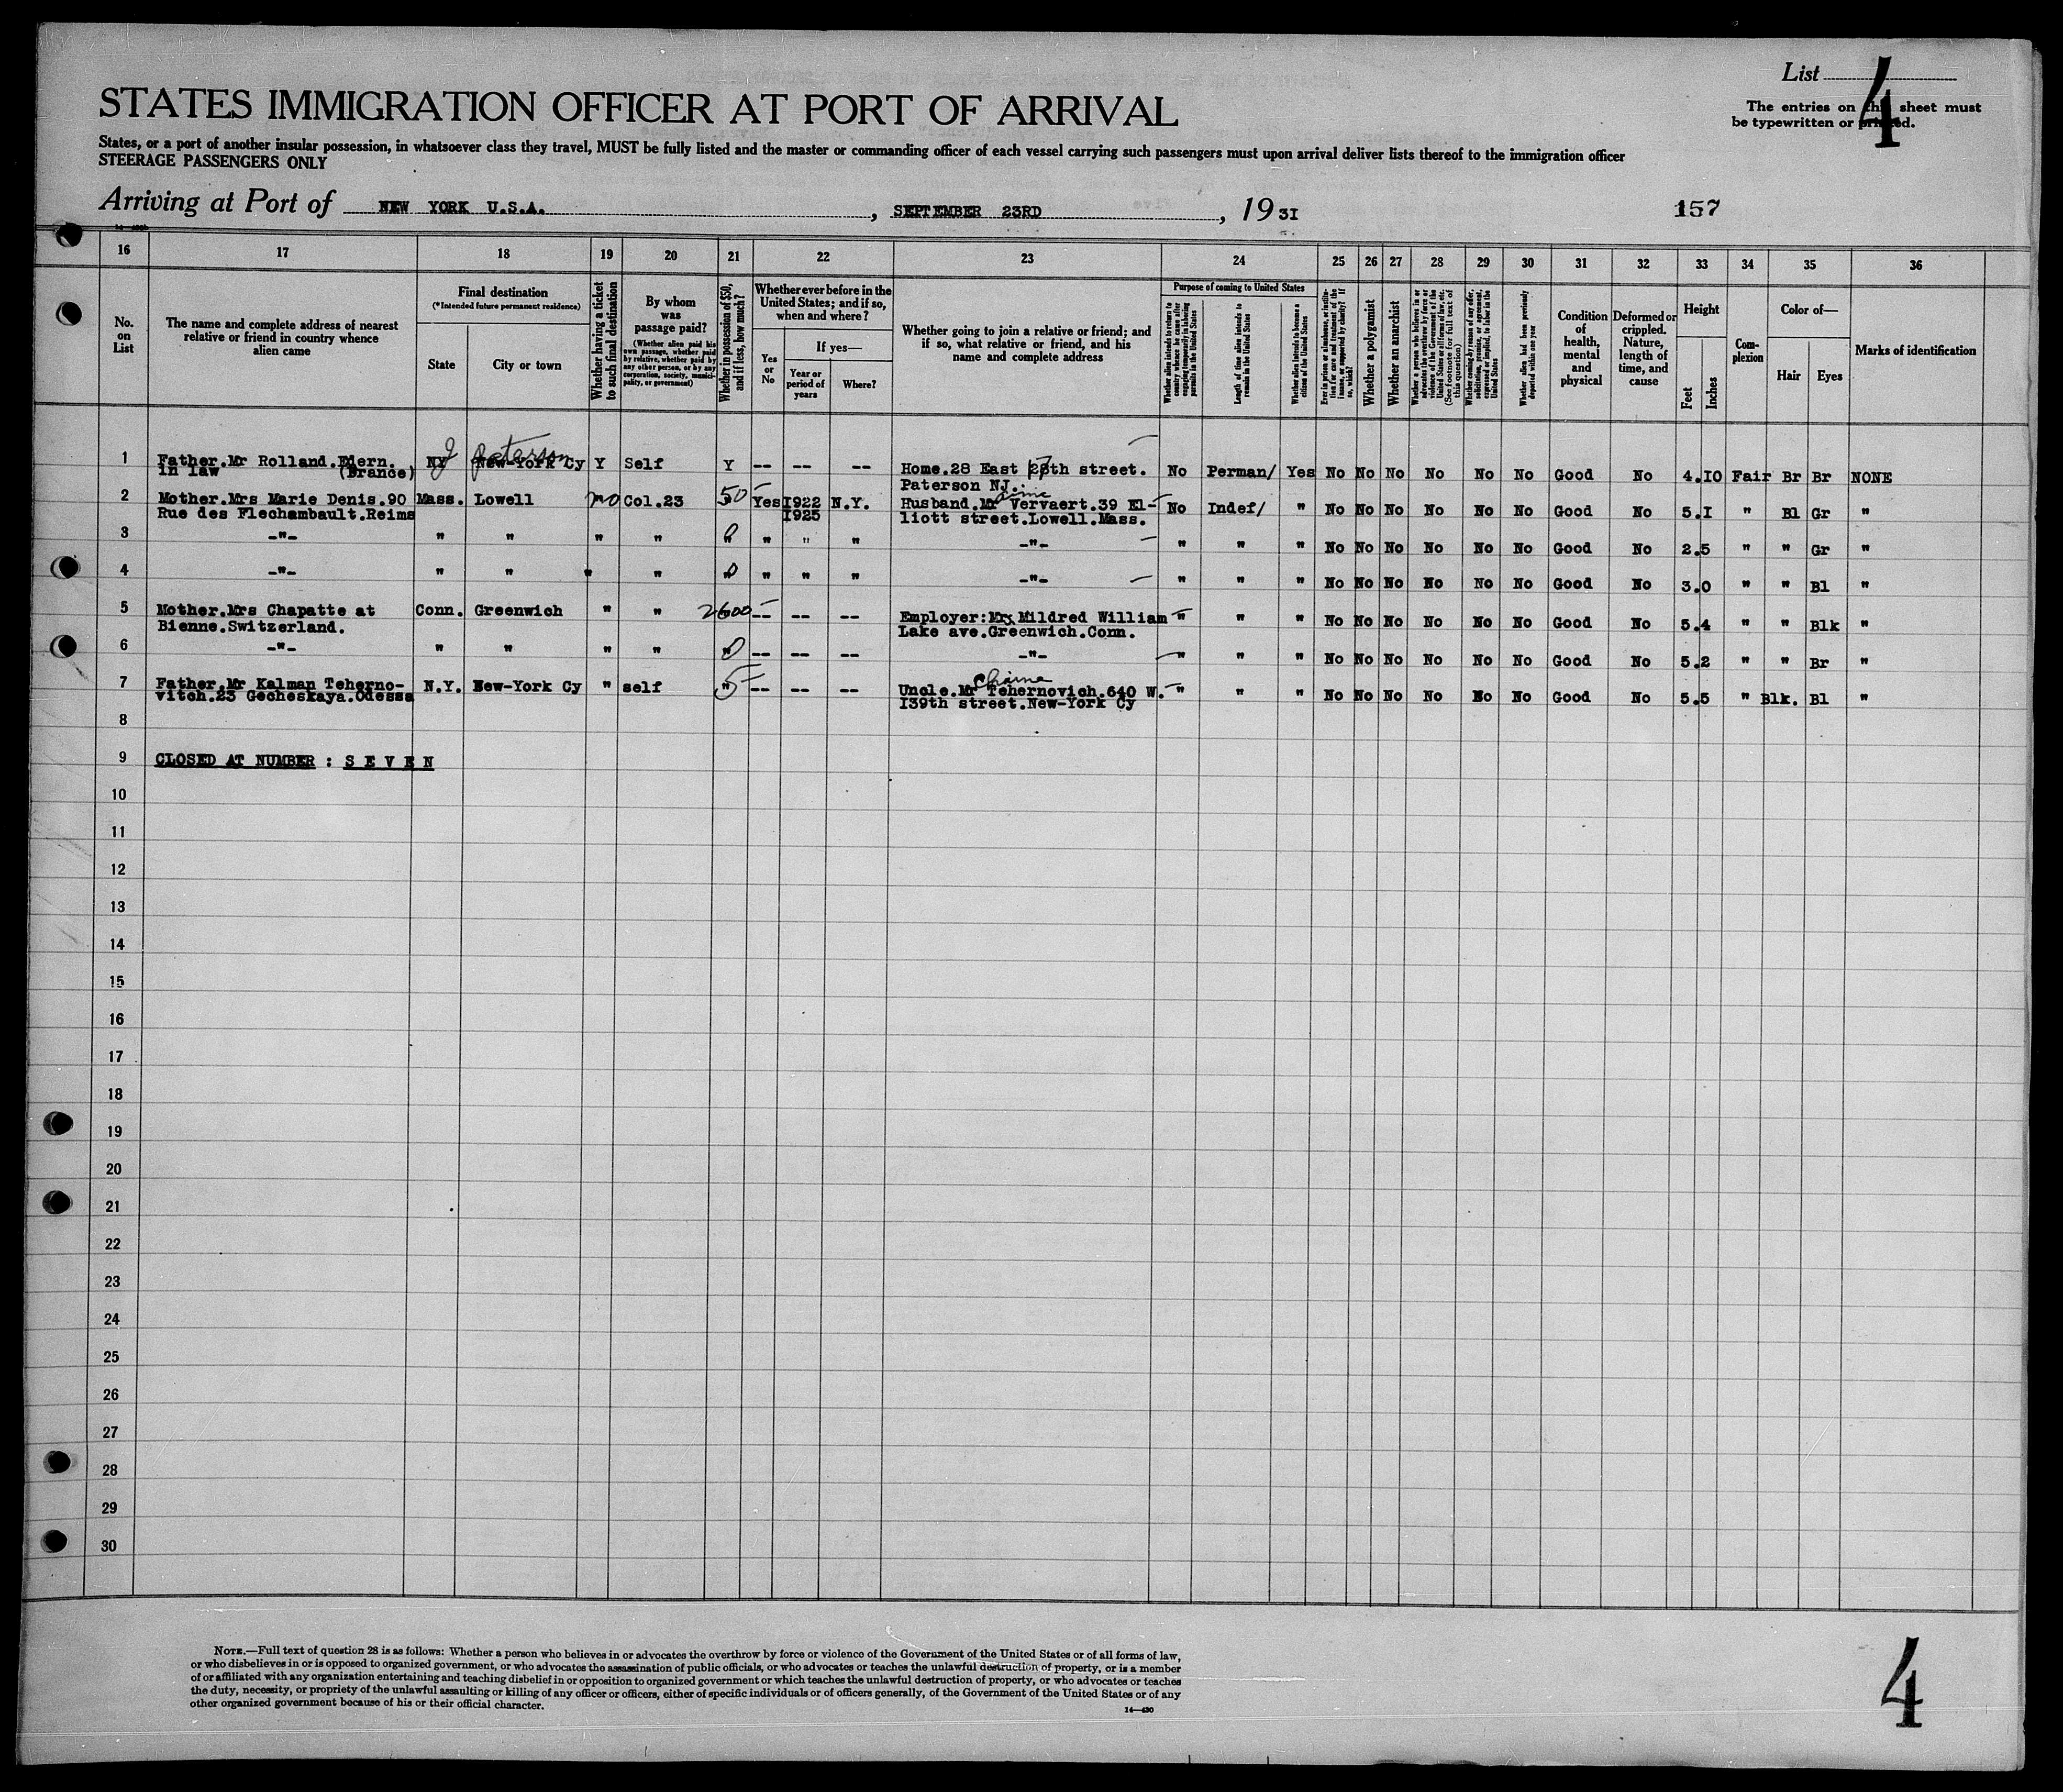 List 4
The entries on this sheet must
be typewritten or printed.
STATES IMMIGRATION OFFICER AT PORT OF ARRIVAL
States, or a port of another insular possession, in whatsoever class they travel, MUST be fully listed and the master or commanding officer of each vessel carrying such passengers must upon arrival deliver lists thereof to the immigration officer
STEERAGE PASSENGERS ONLY
Arriving at Port of NEW YORK U.S.A. , SEPTEMBER 23RD , 1931 157
16 17 18 19 20 21 22 23 24 25 26 27 28 29 30 31 32 33 34 35 36
No. on List
The name and complete address of nearest relative or friend in country whence alien came
Final destination
(*Intended future permanent residence)
State
City or town
Whether having a ticket to such final destination
By whom was passage paid?
(Whether alien paid his own passage, whether paid by relative, whether paid by any other person, or by any corporation, society, municipality, or government)
Whether in possession of $50, and if less, how much?
Whether ever before in the United States; and if so, when and where?
Yes or No
If yes—
Year or period of years
Where?
Whether going to join a relative or friend; and if so, what relative or friend, and his name and complete address
Purpose of coming to United States
Whether alien intends to return to country whence he came after engaging temporarily in laboring pursuits in the United States
Length of time alien intends to remain in the United States
Whether alien intends to become a citizen of the United States
Ever in prison or almshouse, or institution for care and treatment of the insane, or supported by charity? If so, which?
Whether a polygamist
Whether an anarchist
Whether a person who believes in or advocates the overthrow by force or violence of the Government of the United States or all forms of law, etc. (See footnote for full text of this question)
Whether coming by reason of any offer, solicitation, promise, or agreement, expressed or implied, to labor in the United States
Whether alien had been previously deported within one year
Condition of health, mental and physical
Deformed or crippled. Nature, length of time, and cause
Height
Feet
Inches
Complexion
Color of—
Hair
Eyes
Marks of identification
1 Father.Mr Rolland.Edern. NY J New-York Cy Paterson Y Self Y -- -- -- Home.28 East 28th street. 17 No Perman/ Yes No No No No No No Good No 4.10 Fair Br Br NONE
in law (France) Paterson NJ.
2 Mother.Mrs Marie Denis.90 Mass. Lowell no Col.23 50 Yes 1922 N.Y. Husband.Mr Vervaert.39 El- No Indef/ " No No No No No No Good No 5.1 " Bl Gr "
Rue des Flechambault.Reims 1925 liott street.Lowell.Mass.
3 -"- " " " " 0 " " " -"- " " " No No No No No No Good No 2.5 " " Gr "
4 -"- " " " " 0 " " " -"- " " " No No No No No No Good No 3.0 " " Bl "
5 Mother.Mrs Chapatte at Conn. Greenwich " " 2600 -- -- -- Employer:Mrs Mildred William " " " No No No No No No Good No 5.4 " " Blk "
Bienne.Switzerland. Lake ave.Greenwich.Conn.
6 -"- " " " " 0 -- -- -- -"- " " " No No No No No No Good No 5.2 " " Br "
7 Father.Mr Kalman Teherno- N.Y. New-York Cy " self 5 -- -- -- Uncle.Mr Chaime Tehernovich.640 W. " " " No No No No No No Good No 5.5 " Blk. Bl "
vitch.23 Gecheskaya.Odessa 139th street.New-York Cy
8
9 CLOSED AT NUMBER : S E V E N
10
11
12
13
14
15
16
17
18
19
20
21
22
23
24
25
26
27
28
29
30
NOTE.—Full text of question 28 is as follows: Whether a person who believes in or advocates the overthrow by force or violence of the Government of the United States or of all forms of law,
or who disbelieves in or is opposed to organized government, or who advocates the assassination of public officials, or who advocates or teaches the unlawful destruction of property, or is a member
of or affiliated with any organization entertaining and teaching disbelief in or opposition to organized government or which teaches the unlawful destruction of property, or who advocates or teaches
the duty, necessity, or propriety of the unlawful assaulting or killing of any officer or officers, either of specific individuals or of officers generally, of the Government of the United States or of any
other organized government because of his or their official character.
14—430
4